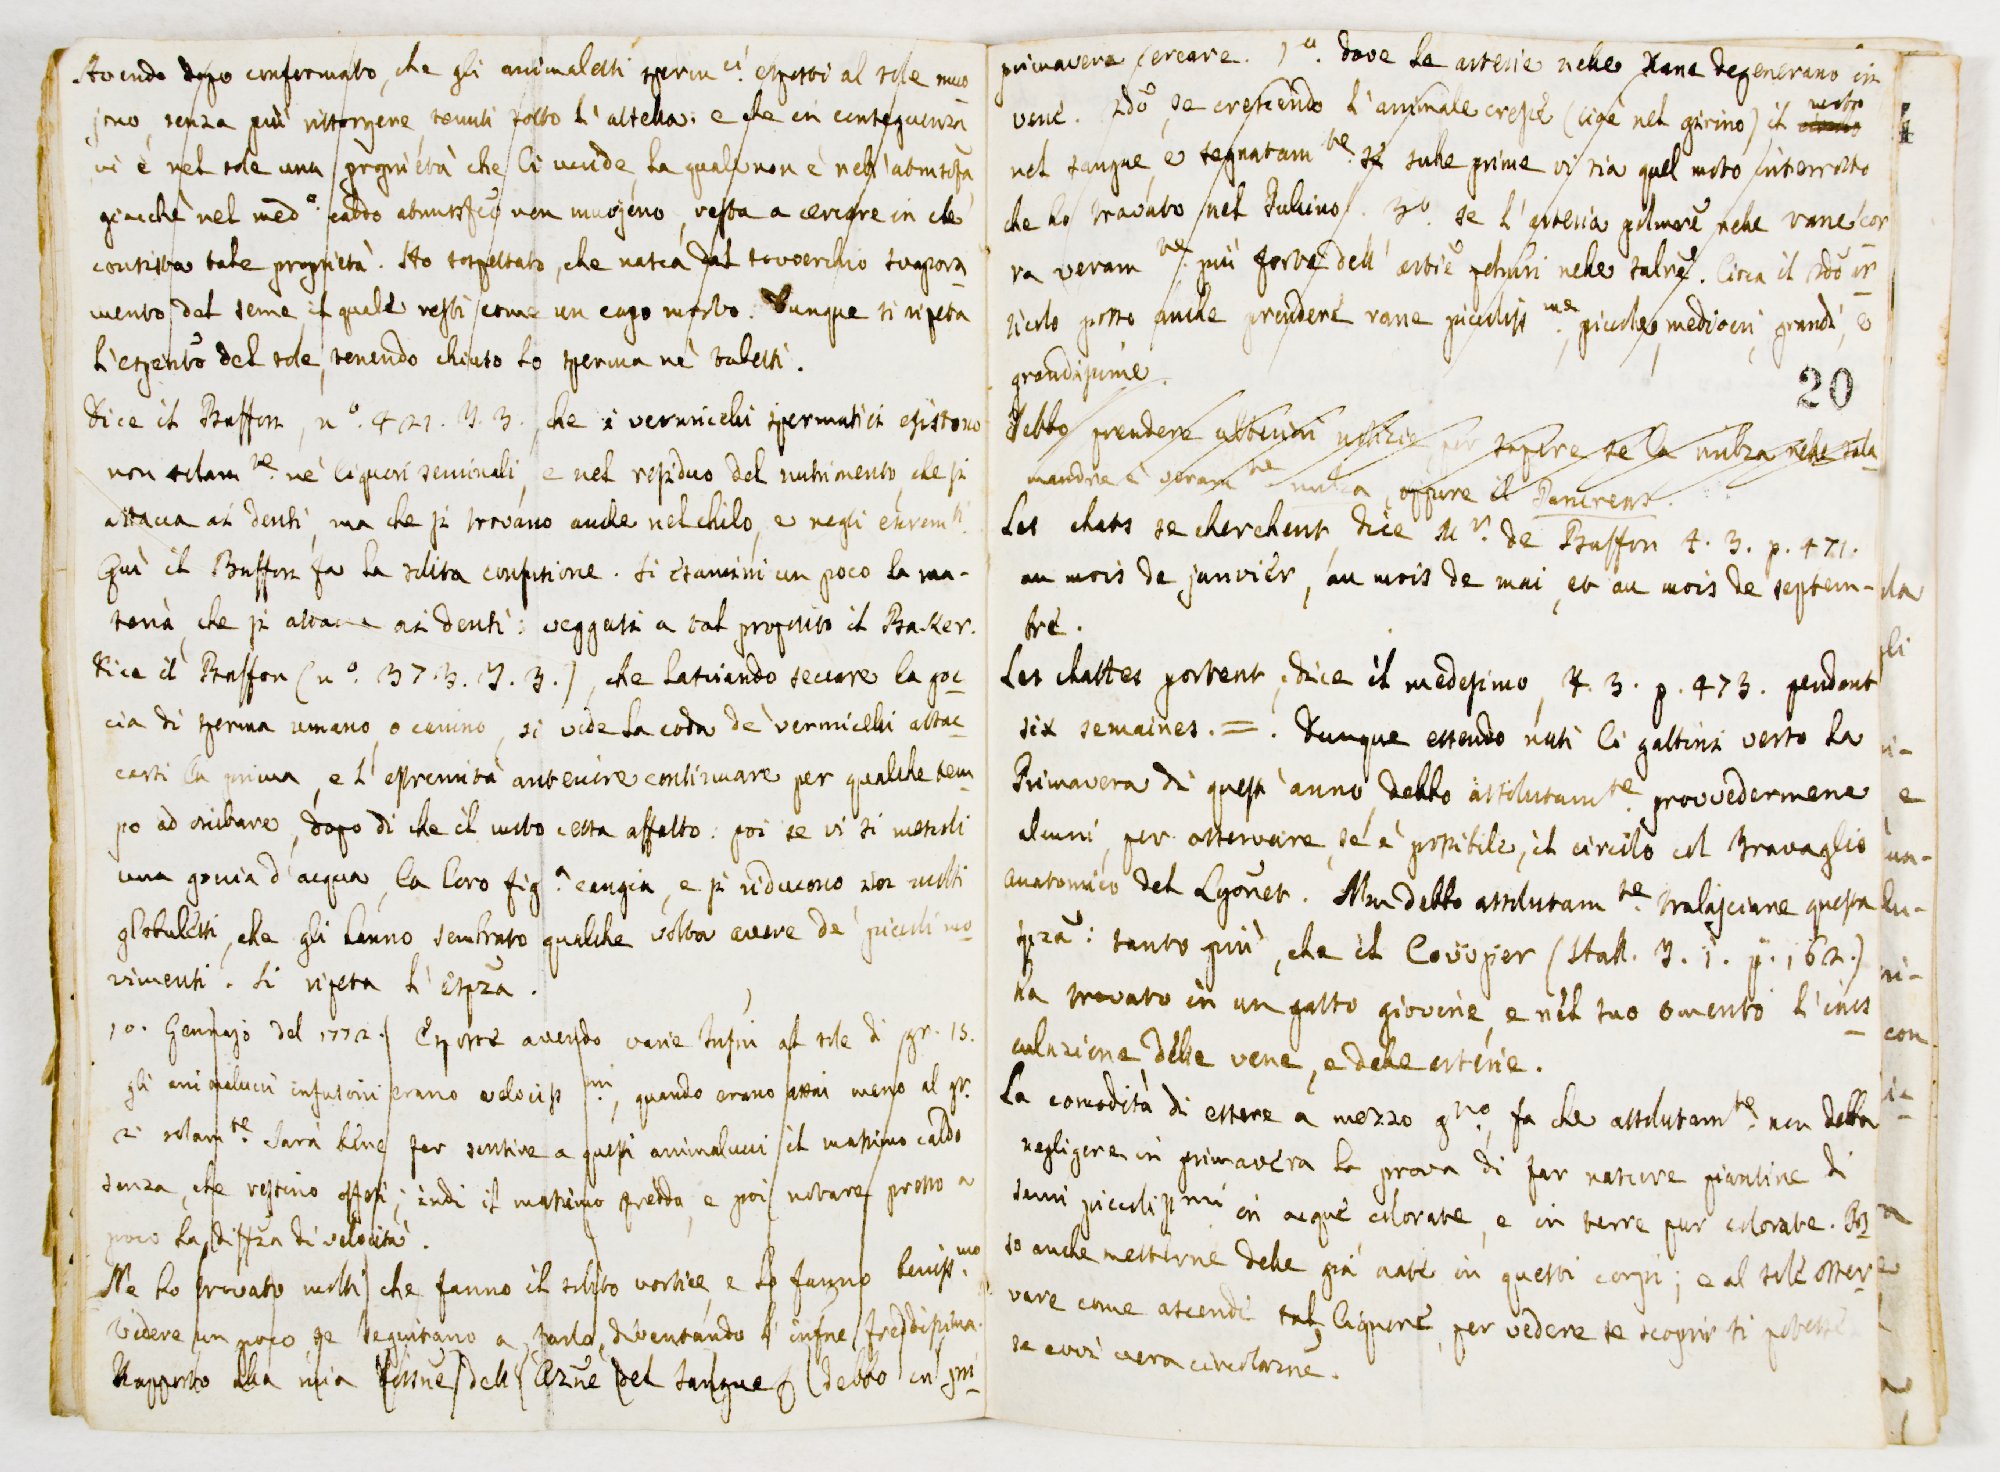 Avendo dopo confermato, che gli animaletti sperm.ci esposti al sole muo
jono, senza più risorgere, tenuti sotto l'altella: e che in conseguenza
vi è nel sole una proprietà che li uccide, la quale non è nell'atmosfa
giacchè nel med.o caldo atmosfco non muojono, resta a cercare in che
consista tale proprietà. Ho sospettato, che nasca dal soverchio svapora
mento del seme, il quale resti come un corpo morto. Dunque si ripeta
l'espento del sole, tenendo chiuso lo sperma ne' tubetti.
Dice il Buffon, n.o 421. T. 3. che i vermicelli spermatici esistono
non solam.te ne' liquori seminali, e nel residuo del nutrimento, che si
attacca ai denti, ma che si trovano anche nel chilo, e negli escrem.ti.
Quì il Buffon fa la solita confusione. Si esamini un poco la ma-
teria, che si attacca ai denti: veggasi a tal proposito il Baker.
Dice il Buffon (n.o 373. T. 3.), che lasciando seccare la goc
cia di sperma umano, o canino, si vide la coda de' vermicelli attac
carsi la prima, e l'estremità anteriore continuare per qualche tem
po ad oscilare, dopo di che il moto cessa affatto: poi se vi si metesti
una goccia d'acqua, la loro fig.a cangia, e si riducono in molti
globuletti, che gli hanno sembrato qualche volta avere de' piccoli mo
vimenti. Si ripeta l'Espza.
10. Gennajo del 1772. Esposte avendo varie Infni al sole di gr. 15.
gli animalucci infusorj erano velociss.mi, quando erano assai meno al gr.
2 solam.te. Sarà bene far sentire a questi animalucci il massimo caldo
senza, che restino offesi; indi il massimo freddo, e poi notare presso a
poco la diffza di velocità.
Ne ho trovato molti che fanno il solito vortice, e lo fanno beniss.mo
Vedere un poco se seguitano a farlo, diventando l'infne freddissima.
Rapporto alla mia fissne dell' Azne del sangue (debbo in pri
primavera cercare. 1.o dove le arterie nelle Rane degenerano in
vene. 2do, se crescendo l'animale cresce (cioè nel girino) il moto
nel sangue, e segnatam.te se sulle prime vi sia quel moto interrotto
che ho trovato nel Pulcino. 3o. se l'arteria polmore nelle rane cor
ra veram.te più forte dell' artie polmri nelle salre. Circa il 2do ar
ticolo posso anche prendere rane piccoliss.me, piccole, mediocri, grandi, e
grandissime.
20
Debbo prendere ulteriori notizie per sapere se la milza nelle sala
mandre è veram.te milza, oppure il Pancreas.
Les chats se cherchent, dice M.r de Buffon t. 3. p. 471.
au mois de janvier, au mois de mai, et au mois de septem-
bre.
Les chattes portent, dice il medesimo, T. 3. p. 473. pendant
six semaines. =. Dunque essendo nati li gattini verso la
Primavera di quest'anno, debbo assolutam.te provvedermene
alcuni, per osservare, se è possibile, il circolo col travaglio
anatomico del Lyonet. Non debbo assolutam.te tralasciare questa
spza: tanto più, che il Covvper (Hall. T. 1. p. 162.)
ha trovato in un gatto giovine, e nel suo omento l'inos
culazione delle vene, e delle arterie.
La comodità di essere a mezzo g.rno, fa che assolutam.te non debba
negligere in primavera la prova di far nascere piantine di
semi piccolissmi in acque colorate, e in terre pur colorate. Pos
so anche metterne delle già nate in questi corpi; e al sole osser
vare come ascendi tal liquore, per vedere se scoprir si potesse
se evvi vera circolazne.